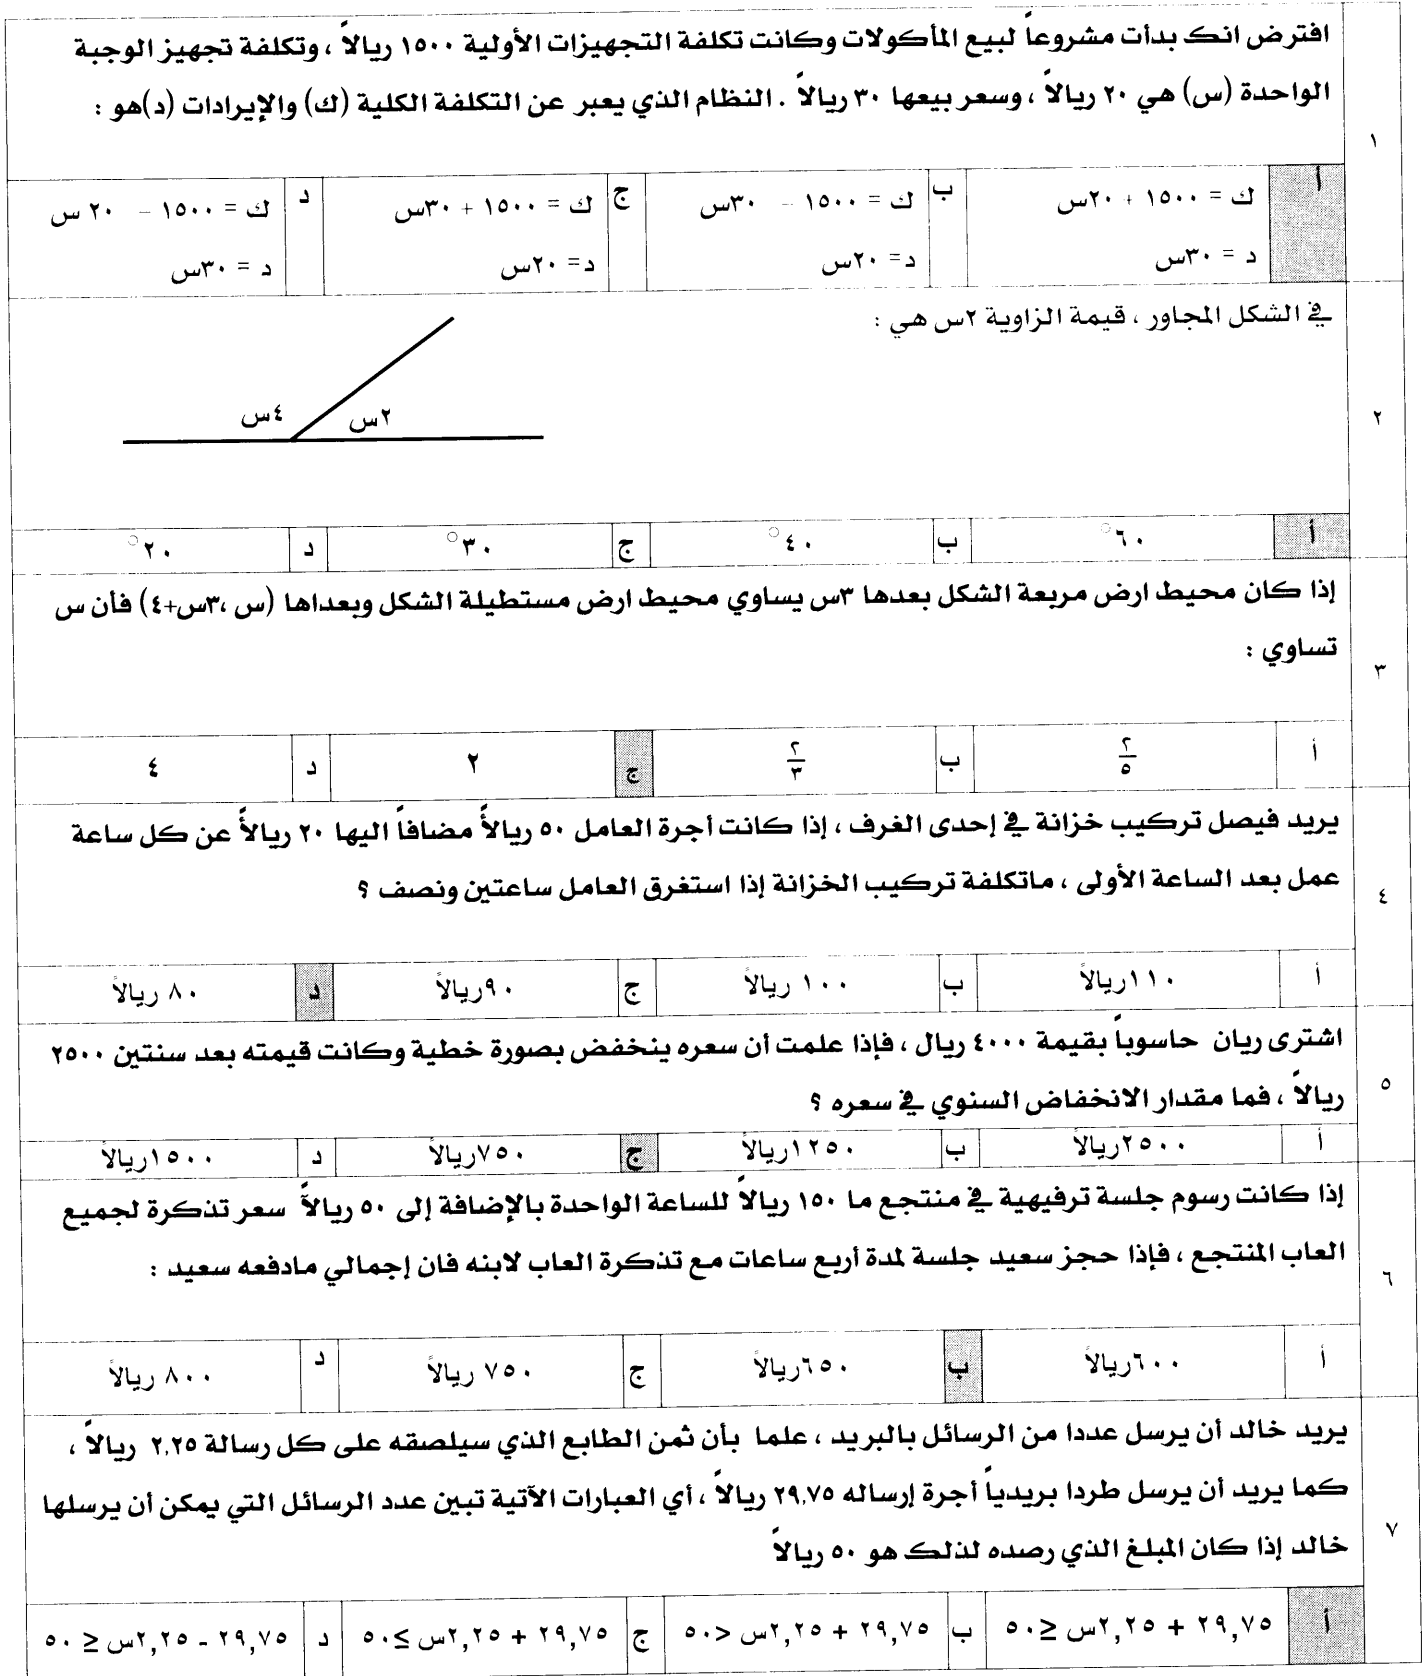 افترض انك بدأت مشروعاً لبيع المأكولات وكانت تكلفة التجهيزات الأولية ١٥٠٠ ريالاً ، وتكلفة تجهيز الوجبة
الواحدة (س) هي ٢٠ ريالاً ، وسعر بيعها ٣٠ ريالاً . النظام الذي يعبر عن التكلفة الكلية (ك) والإيرادات (د)هو :
١
أ ك = ١٥٠٠ + ٢٠س ب ك = ١٥٠٠ - ٣٠س ج ك = ١٥٠٠ + ٣٠س د ك = ١٥٠٠ - ٢٠ س
د = ٣٠س د= ٢٠س د= ٢٠س د = ٣٠س
في الشكل المجاور ، قيمة الزاوية ٢س هي :
٤س ٢س
٢
أ ٦٠° ب ٤٠° ج ٣٠° د ٢٠°
إذا كان محيط ارض مربعة الشكل بعدها ٣س يساوي محيط ارض مستطيلة الشكل وبعداها (س ،٣س+٤) فأن س
تساوي :
٣
أ ٢/٥ ب ٢/٣ ج ٢ د ٤
يريد فيصل تركيب خزانة في إحدى الغرف ، إذا كانت أجرة العامل ٥٠ ريالاً مضافاً اليها ٢٠ ريالاً عن كل ساعة
عمل بعد الساعة الأولى ، ماتكلفة تركيب الخزانة إذا استغرق العامل ساعتين ونصف ؟
٤
أ ١١٠ريالاً ب ١٠٠ ريالاً ج ٩٠ريالاً د ٨٠ ريالاً
اشترى ريان حاسوباً بقيمة ٤٠٠٠ ريال ، فإذا علمت أن سعره ينخفض بصورة خطية وكانت قيمته بعد سنتين ٢٥٠٠
ريالاً ، فما مقدار الانخفاض السنوي في سعره ؟
٥
أ ٢٥٠٠ريالاً ب ١٢٥٠ريالاً ج ٧٥٠ريالاً د ١٥٠٠ريالاً
إذا كانت رسوم جلسة ترفيهية في منتجع ما ١٥٠ ريالاً للساعة الواحدة بالإضافة إلى ٥٠ ريالاً سعر تذكرة لجميع
العاب المنتجع ، فإذا حجز سعيد جلسة لمدة أربع ساعات مع تذكرة العاب لابنه فان إجمالي مادفعه سعيد :
٦
أ ٦٠٠ريالاً ب ٦٥٠ريالاً ج ٧٥٠ ريالاً د ٨٠٠ ريالاً
يريد خالد أن يرسل عددا من الرسائل بالبريد ، علما بأن ثمن الطابع الذي سيلصقه على كل رسالة ٢,٢٥ ريالاً ،
كما يريد أن يرسل طردا بريدياً أجرة إرساله ٢٩,٧٥ ريالاً ، أي العبارات الآتية تبين عدد الرسائل التي يمكن أن يرسلها
خالد إذا كان المبلغ الذي رصده لذلك هو ٥٠ ريالاً
٧
أ ٢٩,٧٥ + ٢,٢٥س ≥٥٠ ب ٢٩,٧٥ + ٢,٢٥س >٥٠ ج ٢٩,٧٥ + ٢,٢٥س ≤٥٠ د ٢٩,٧٥ - ٢,٢٥س ≥ ٥٠